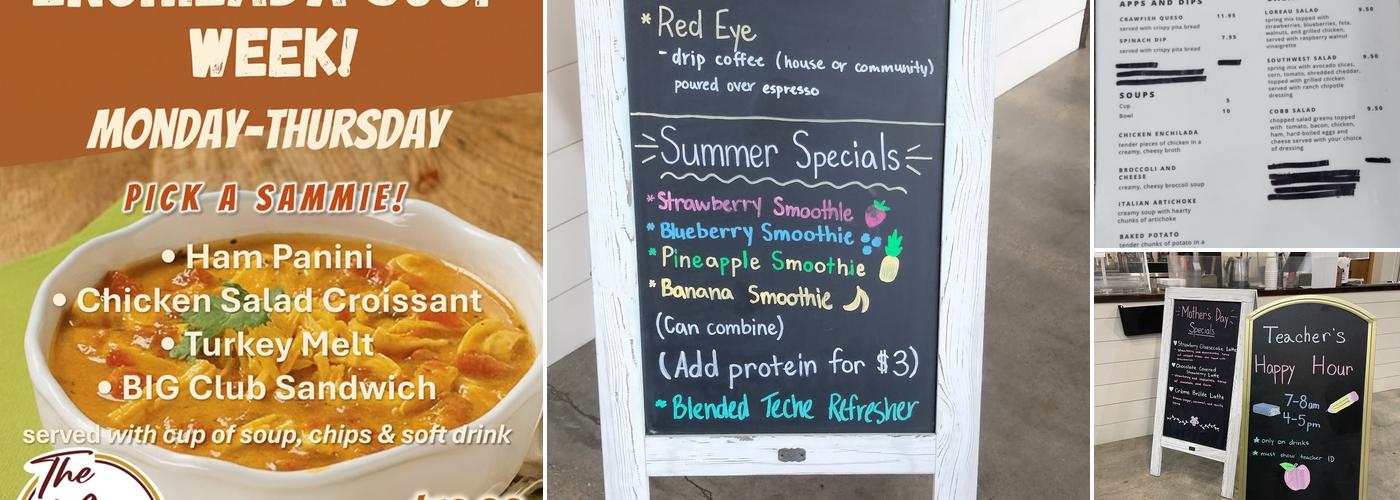 WEEK!
MONDAY-THURSDAY
PICK A SAMMIE!
• Ham Panini
• Chicken Salad Croissant
• Turkey Melt
• BIG Club Sandwich
served with cup of soup, chips & soft drink
The
* Red Eye
- drip coffee (house or community)
poured over espresso
Summer Specials
* Strawberry Smoothie
* Blueberry Smoothie
* Pineapple Smoothie
* Banana Smoothie
(Can combine)
(Add protein for $3)
* Blended Teche Refresher
APPS AND DIPS
CRAWFISH QUESO 11.95
served with crispy pita bread
SPINACH DIP 7.95
served with crispy pita bread
SOUPS
Cup 5
Bowl 10
CHICKEN ENCHILADA
tender pieces of chicken in a
creamy, cheesy broth
BROCCOLI AND
CHEESE
creamy, cheesy broccoli soup
ITALIAN ARTICHOKE
creamy soup with hearty
chunks of artichoke
BAKED POTATO
tender chunks of potato in a
LOREAU SALAD 9.50
spring mix topped with
strawberries, blueberries, feta,
walnuts, and grilled chicken,
served with raspberry walnut
vinaigrette
SOUTHWEST SALAD 9.50
spring mix with avocado slices,
corn, tomato, shredded cheddar,
topped with grilled chicken
served with ranch chipotle
dressing
COBB SALAD 9.50
chopped salad greens topped
with tomato, bacon, chicken,
ham, hard-boiled eggs and
cheese served with your choice
of dressing
Mother's Day
Specials
Strawberry Cheesecake Latte
Chocolate Covered
Strawberry Latte
Crème Brûlée Latte
Teacher's
Happy Hour
7-8am
4-5pm
only on drinks
must show teacher ID